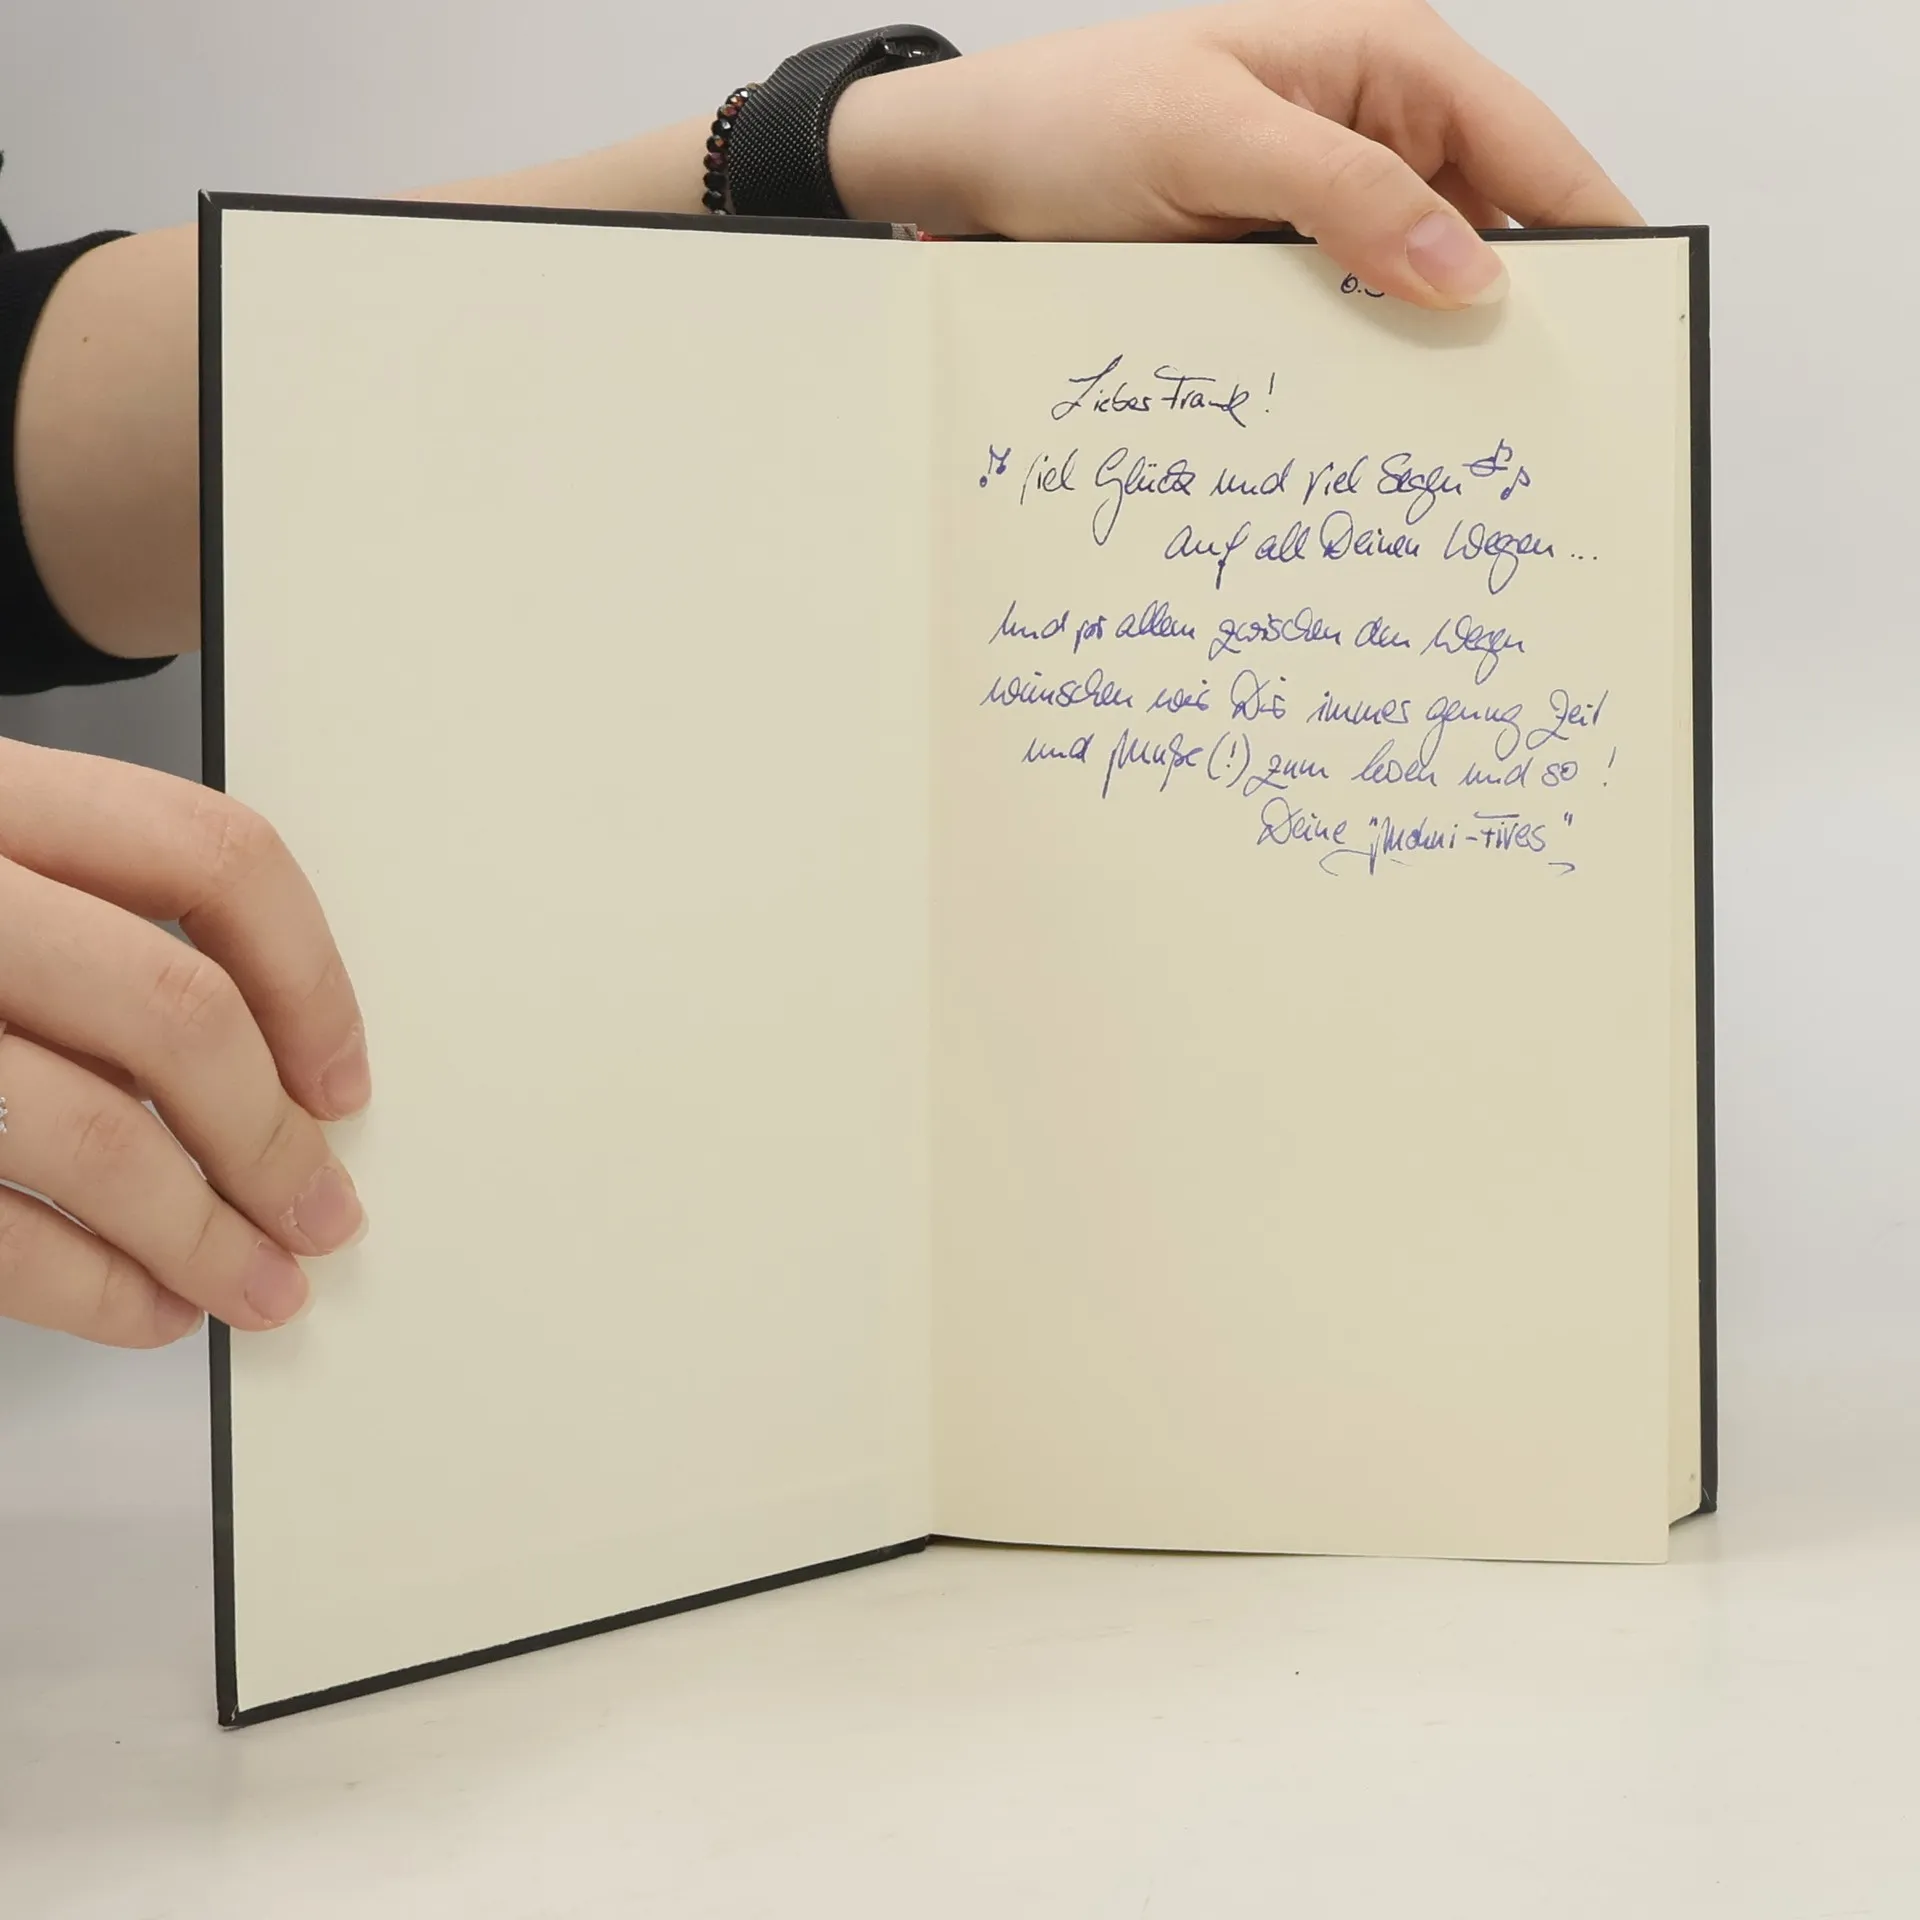 6.
Lieber Frank!
Viel Glück und viel Segen
auf all Deinen Wegen...
Und vor allem zwischen den Wegen
wünschen wir Dir immer genug Zeit
und Muße (!) zum lesen und so!
Deine